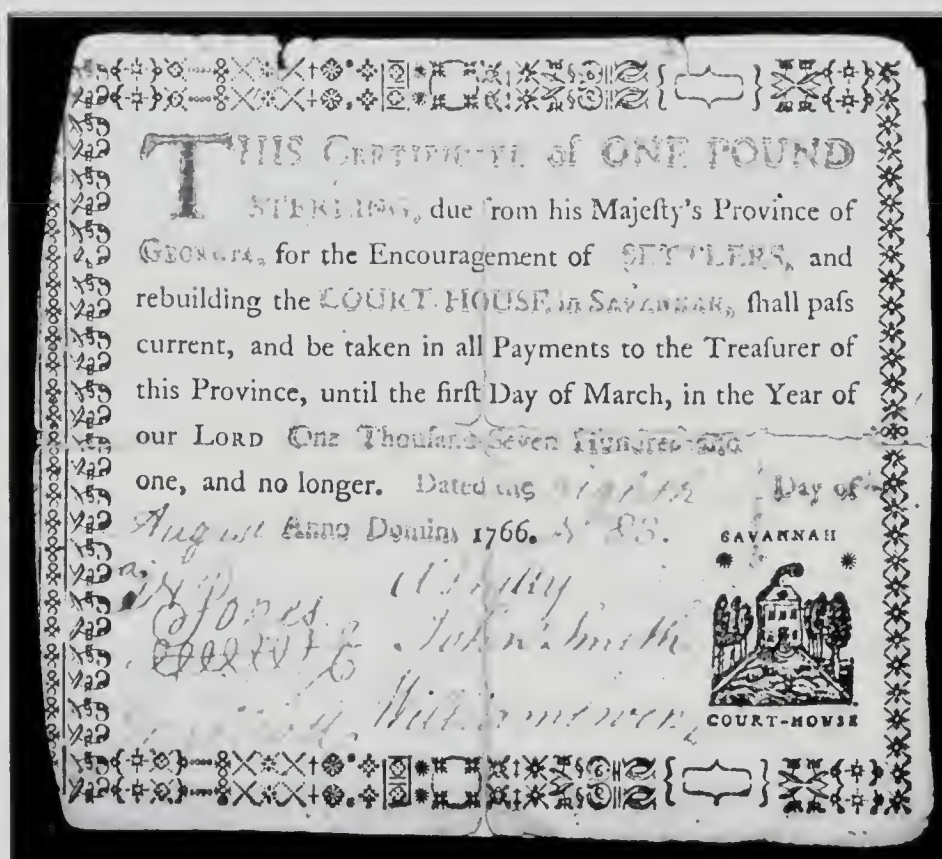 THIS CERTIFICATE of ONE POUND
STERLING, due from his Majeſty's Province of
GEORGIA, for the Encouragement of SETTLERS, and
rebuilding the COURT-HOUSE in SAVANNAH, ſhall paſs
current, and be taken in all Payments to the Treaſurer of
this Province, until the firſt Day of March, in the Year of
our LORD One Thouſand Seven Hundred and
one, and no longer. Dated the Day of
August Anno Domini 1766.
SAVANNAH
Jones
John Smith
William Ewen
COURT-HOUSE